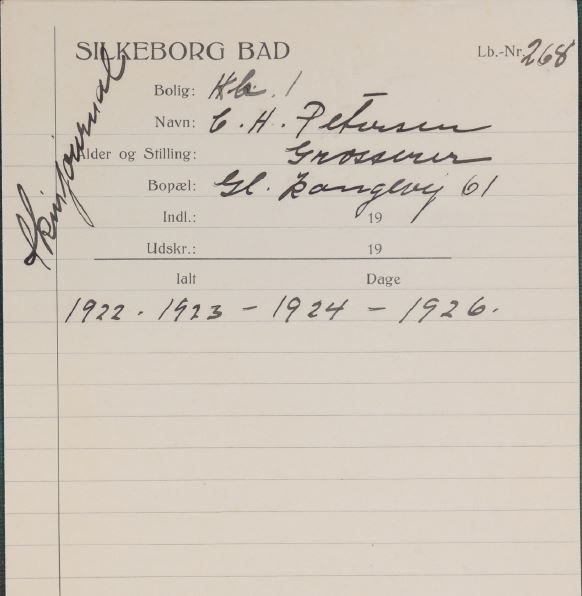 SILKEBORG BAD Lb.-Nr. 268
Bolig: Kb. 1
Navn: C. H. Petersen
Alder og Stilling: Grosserer
Bopæl: Gl. Kongevej 61
Indl.: 19
Udskr.: 19
Ialt Dage
1922 . 1923 - 1924 - 1926.